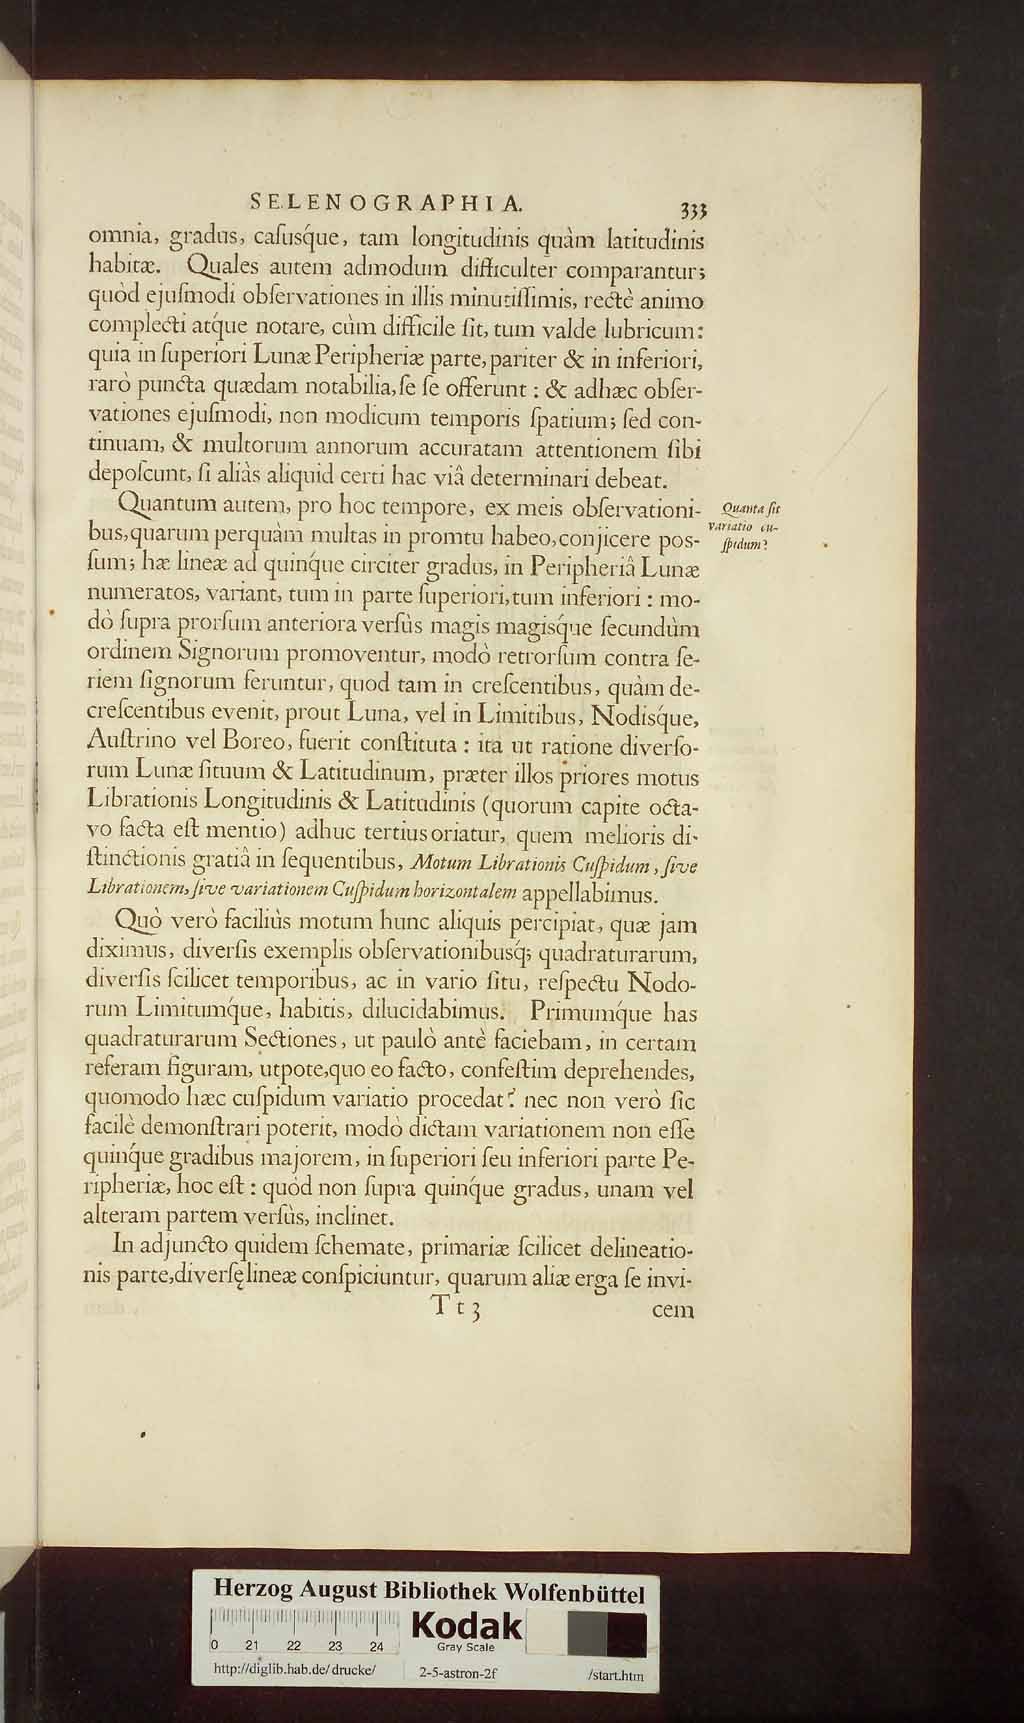 SELENOGRAPHIA.
333
omnia, gradus, caſusq́ue, tam longitudinis quàm latitudinis
habitæ. Quales autem admodum difficulter comparantur;
quòd ejuſmodi obſervationes in illis minutiſſimis, rectè animo
complecti atq́ue notare, cùm difficile ſit, tum valde lubricum:
quia in ſuperiori Lunæ Peripheriæ parte, pariter & in inferiori,
rarò puncta quædam notabilia, ſe ſe offerunt : & adhæc obſer-
vationes ejuſmodi, non modicum temporis ſpatium; ſed con-
tinuam, & multorum annorum accuratam attentionem ſibi
depoſcunt, ſi aliàs aliquid certi hac viâ determinari debeat.
Quantum autem, pro hoc tempore, ex meis obſervationi-
bus, quarum perquàm multas in promtu habeo, conjicere pos-
ſum; hæ lineæ ad quinq́ue circiter gradus, in Peripheriâ Lunæ
numeratos, variant, tum in parte ſuperiori, tum inferiori : mo-
dò ſupra prorſum anteriora verſùs magis magisq́ue ſecundùm
ordinem Signorum promoventur, modò retrorſum contra ſe-
riem ſignorum feruntur, quod tam in creſcentibus, quàm de-
creſcentibus evenit, prout Luna, vel in Limitibus, Nodisq́ue,
Auſtrino vel Boreo, fuerit conſtituta : ita ut ratione diverſo-
rum Lunæ ſituum & Latitudinum, præter illos priores motus
Librationis Longitudinis & Latitudinis (quorum capite octa-
vo facta eſt mentio) adhuc tertius oriatur, quem melioris di-
ſtinctionis gratiâ in ſequentibus, Motum Librationis Cuſpidum, ſive
Librationem, ſive variationem Cuſpidum horizontalem appellabimus.
Quanta ſit
variatio cu-
ſpidum?
Quò verò faciliùs motum hunc aliquis percipiat, quæ jam
diximus, diverſis exemplis obſervationibusq́; quadraturarum,
diverſis ſcilicet temporibus, ac in vario ſitu, reſpectu Nodo-
rum Limitumq́ue, habitis, dilucidabimus. Primumq́ue has
quadraturarum Sectiones, ut paulò antè faciebam, in certam
referam figuram, utpote, quo eo facto, confeſtim deprehendes,
quomodo hæc cuſpidum variatio procedat? nec non verò ſic
facilè demonſtrari poterit, modò dictam variationem non eſſe
quinq́ue gradibus majorem, in ſuperiori ſeu inferiori parte Pe-
ripheriæ, hoc eſt : quòd non ſupra quinq́ue gradus, unam vel
alteram partem verſùs, inclinet.
In adjuncto quidem ſchemate, primariæ ſcilicet delineatio-
nis parte, diverſę lineæ conſpiciuntur, quarum aliæ erga ſe invi-
T t 3
cem
Herzog August Bibliothek Wolfenbüttel
0 21 22 23 24
Kodak
Gray Scale
http://diglib.hab.de/drucke/ 2-5-astron-2f /start.htm